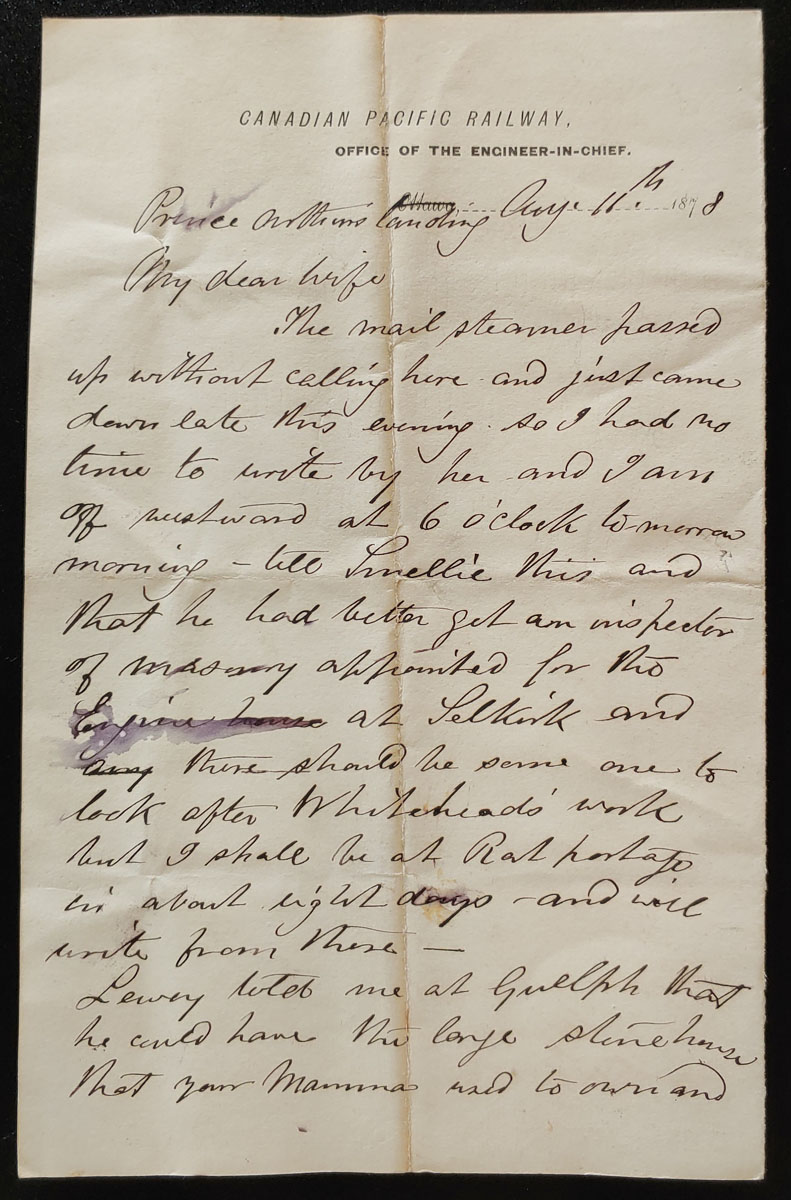 CANADIAN PACIFIC RAILWAY,
OFFICE OF THE ENGINEER-IN-CHIEF.
Prince Arthurs landing Ottawa, Aug. 11th 1878
My dear Wife
The mail steamer passed
up without calling here and just came
down late this evening. so I had no
time to write by her and I am
off westward at 6 o'clock tomorrow
morning - tell Smellie this and
that he had better get an inspector
of masonry appointed for the
Engine house at Selkirk and
any there should be some one to
look after Whiteheads' work
but I shall be at Rat portage
in about eight days - and will
write from there —
Lewey told me at Guelph that
he could have the large stone house
that your Mamma used to own and